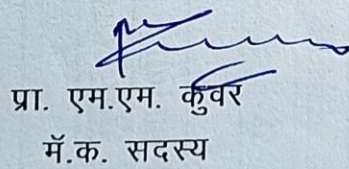 प्रा. एम.एम. कुंवर
मॅ.क. सदस्य